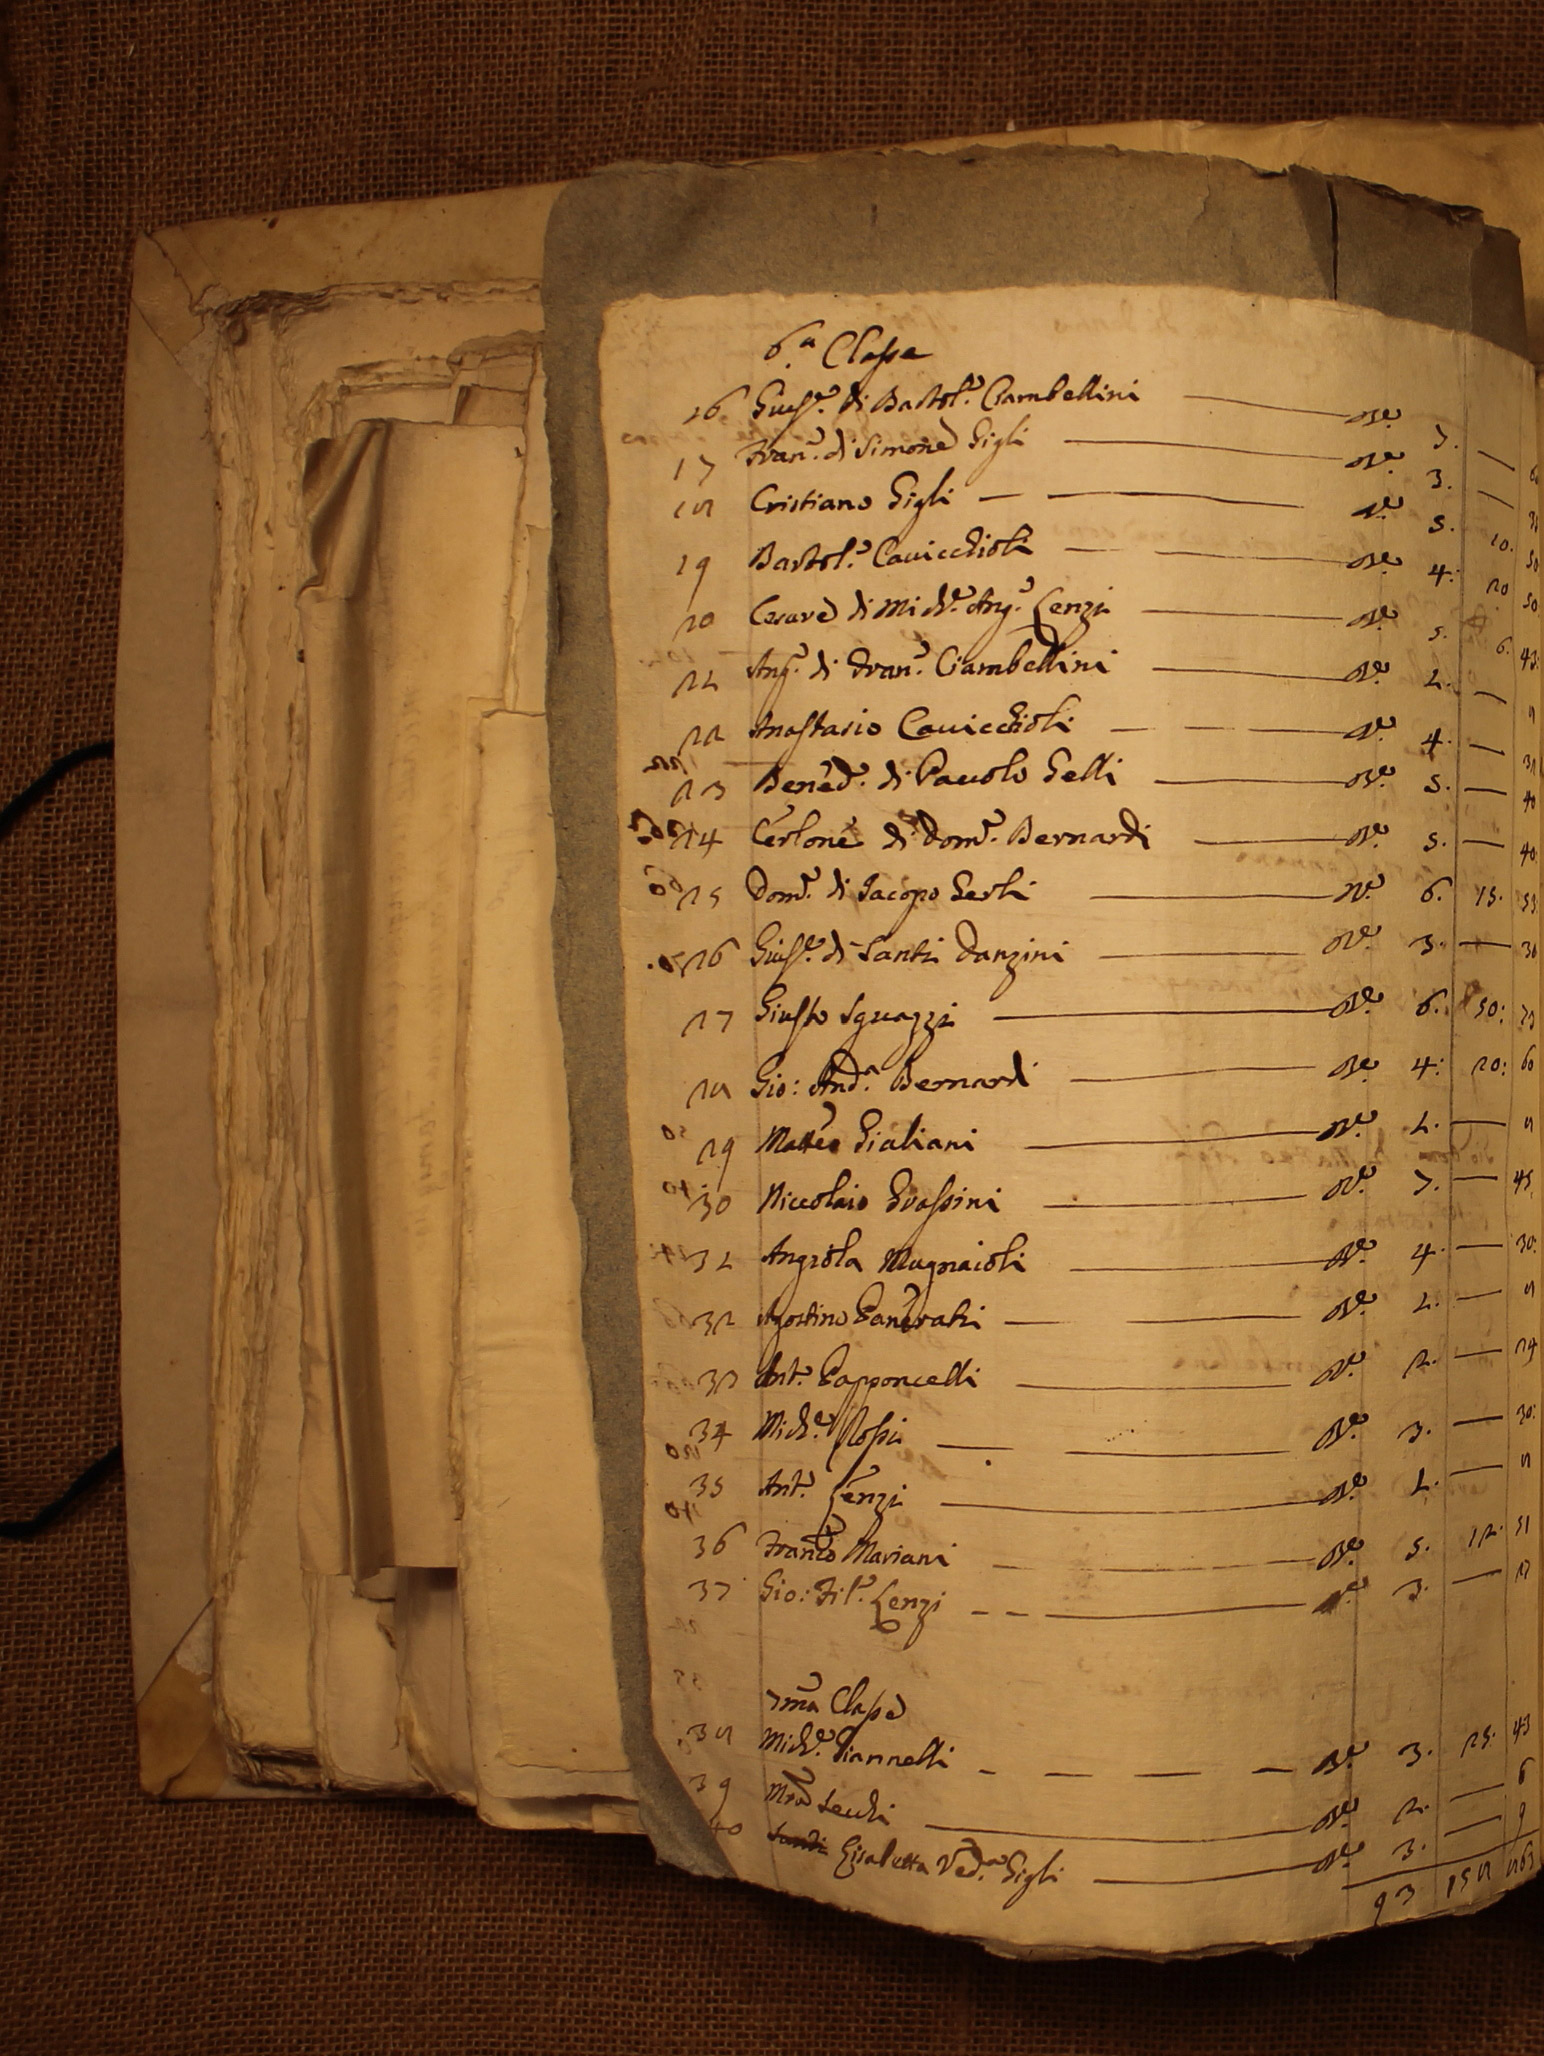 6.a Classe
16 Gius.e di Bartol.o Ciambellini N.o 7. — 6
17 Fran.o di Simone Gigli N.o 3. —
18 Cristiano Gigli N.o 5. 10. 50
19 Bartol.o Cavicchioli N.o 4: 20 50
20 Cesare di Mich.e Ang.o Lenzi N.o 5. 6. 43:
21 Ang.o di Fran.o Ciambellini N.o 1. — 8
22 Anastasio Cavicchioli N.o 4. — 38
23 Bened.o di Pavolo Gelli N.o 5. — 40
24 Cerlone di Dom.o Bernardi N.o 5. — 40
25 Dom.o di Jacopo Gerli N.o 6. 15. 53
26 Gius.e di Santi Danzini N.o 3. — 30
27 Giusto Sguazzi N.o 6. 50:
28 Gio: And.a Bernardi N.o 4: 20: 60
29 Matteo Giuliani N.o 1. — 8
30 Niccolaio Grassini N.o 7. — 48
31 Angiola Mugnaioli N.o 4. — 30:
32 Agostino Pancrazi N.o 1. — 8
33 Ant.o Papponcelli N.o 2. — 24
34 Mich.e Rossi N.o 3. — 30:
35 Ant.o Lenzi N.o 1. — 8
36 Franco Mariani N.o 5. 12. 51
37 Gio: Fil.o Lenzi N.o 3. —
7ma Classe
38 Mich.e Giannelli N.o 3. 25: 43
39 Mra Sechi N.o 2. — 6
40 Santi Elisabetta Ved.a Gigli N.o 3. — 9
93 158 863